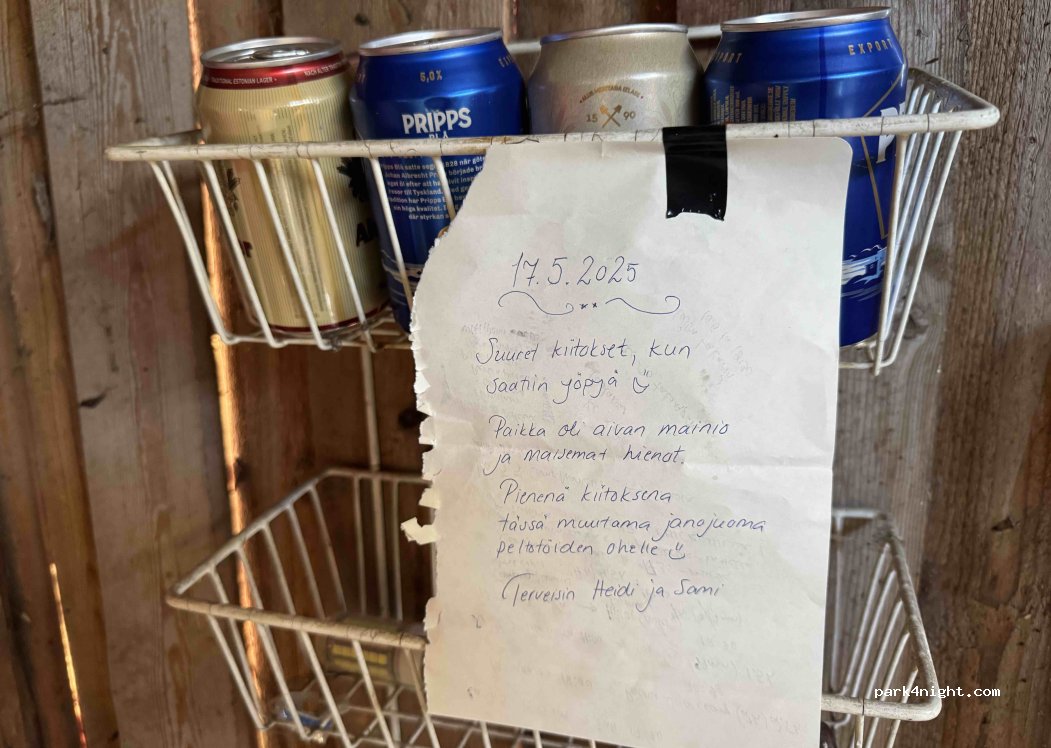 TRADITIONAL ESTONIAN LAGER
NACH ALTER
5,0%
PRIPPS
BLÅ
EXPORT
15 90
17.5.2025
Suuret kiitokset, kun
saatiin yöpyä
Paikka oli aivan mainio
ja maisemat hienot.
Pienenä kiitoksena
tässä muutama janojuoma
peltotöiden ohelle
Terveisin Heidi ja Sami
park4night.com